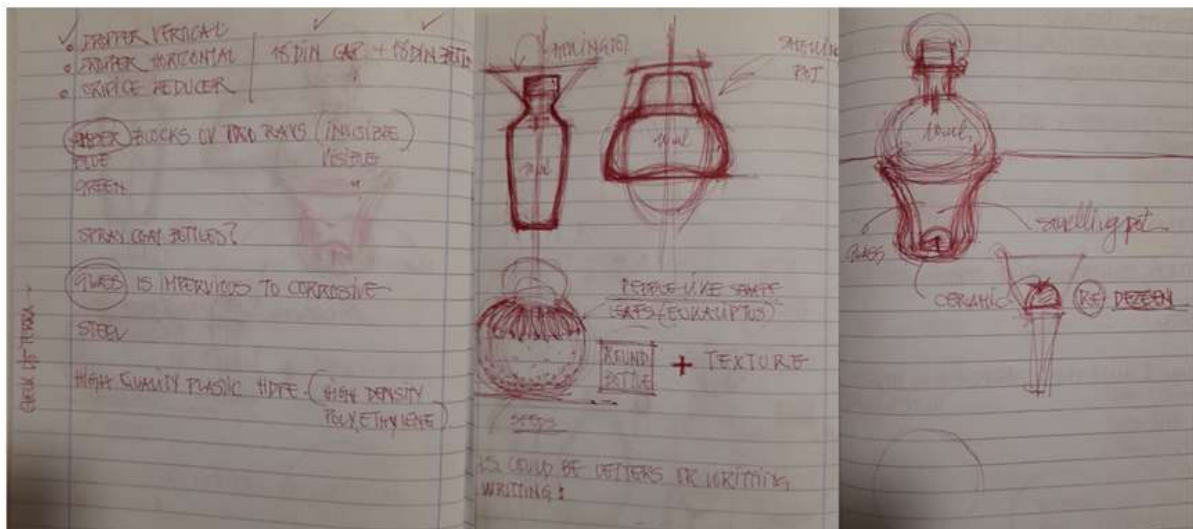 DROPPER VERTICAL
DROPPER HORIZONTAL
ORIFICE REDUCER
18 DIN CAP + 18 DIN BOTTLE
AMBER BLOCKS UV RAYS (INVISIBLE)
BLUE VISIBLE
GREEN "
SPRAY COAT BOTTLES?
GLASS IS IMPERVIOUS TO CORROSIVE
STEEL
HIGH QUALITY PLASTIC HDPE - (HIGH DENSITY
POLYETHYLENE)
SMELLING
POT
10ml
10ml
PEBBLE-LIKE SHAPE
(EUKALIPTUS)
ROUND
BOTTLE
+ TEXTURE
SEEDS
COULD BE LETTERS OR WRITTING
WRITTING!
10ml
smelling pot
GLASS
CERAMIC
(RE) DEZEEN